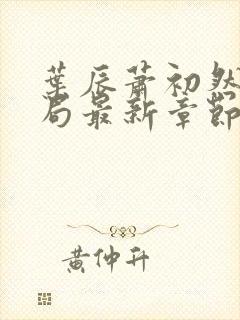 葉辰蕭初然
局最新章節
黃仲升